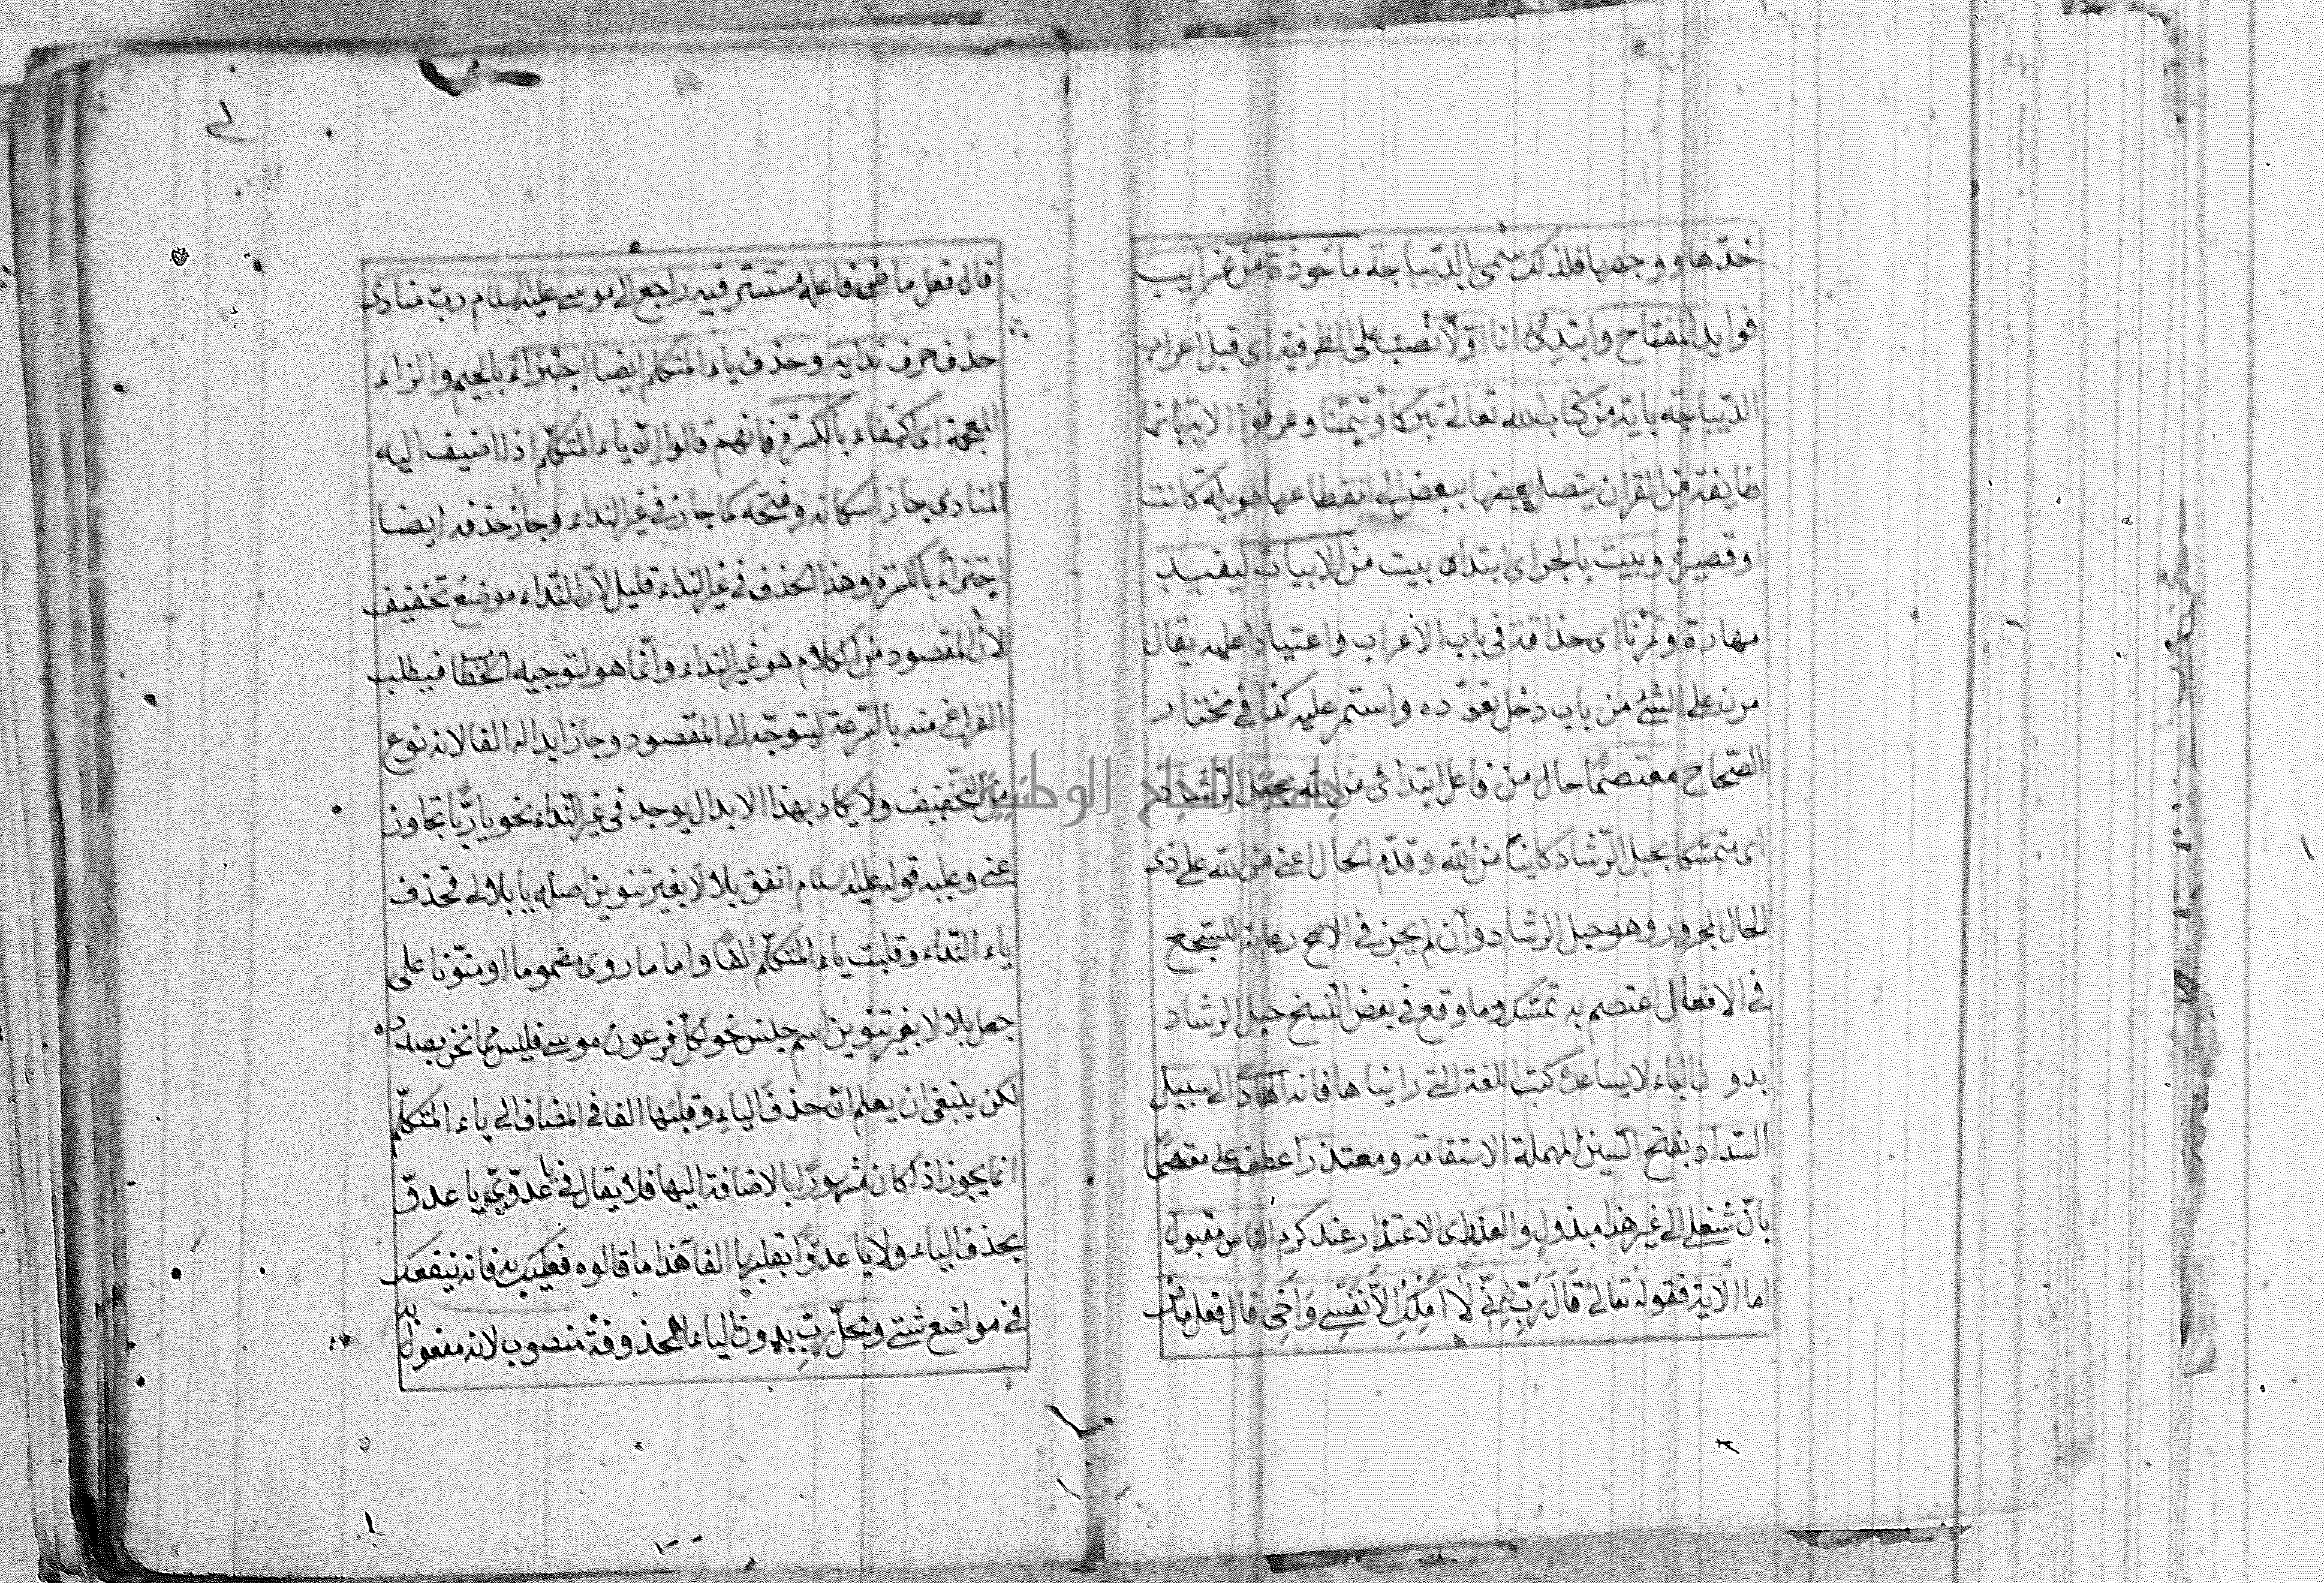 خدها ووجهها فلذلك سمى بالديباجة ماخوذة من غرايب
فوايد المفتاح وابتدئ انا اولا نصب على الظرفية اى قبل اعراب
الديباجة باية من كتاب الله تعالى تبركا وتيمنا وعرفوا الاية بانها
طايفة من القران يتصل بعضها ببعض الى انقطاعها طويلة كانت
او قصيرة وبيت بالجر اى ابتدائ بيت من الابيات ليفيد
مهارة وتمرنا اى حذاقة فى باب الاعراب واعتيادا عليه يقال
مرن على الشئ من باب دخل تعوده واستمر عليه كذا فى مختار
الصحاح معتصما حال من فاعل ابتدائ من الله بحبل الرشاد
اى متمسكا بحبل الرشاد كاينا من الله وقدم الحال اعنى من الله على ذى
الحال المجرور وهو حبل الرشاد وان لم يجز فى الاصح رعاية للسجع
فى الافعال اعتصم به تمسك وما وقع فى بعض النسخ حبل الرشاد
بدون الباء لا يساعده كتب اللغة التى رايناها فانه الهاد الى سبيل
السداد بفتح السين المهملة الاستقامة ومعتذرا عطف على معتصما
بان شغلى الى غير هذا مبذول والعذر اى الاعتذار عند كرم الناس مقبول
اما الاية فقوله تعالى قَالَ رَبِّ اِنِّى لَا اَمْلِكُ اِلَّا نَفْسِى وَاَخِى قال فعل ماض
قال فعل ماض فاعله مستتر فيه راجع الى موسى عليه السلام رب منادى
حذف حرف ندايه وحذف ياء المتكلم ايضا اجتزاء بالجيم والزاء
المعجمة اى اكتفاء بالكسرة فانهم قالوا ان ياء المتكلم اذا اضيف اليه
المنادى جاز اسكانه وفتحه كما جاز فى غير النداء وجاز حذفه ايضا
اجتزاء بالكسرة وهذا الحذف فى غير النداء قليل لان النداء موضع تخفيف
لان المقصود من الكلام هو غير النداء وانما هو لتوجيه الخطاب فيطلب
الفراغ منه بالسرعة ليتوجه الى المقصود وجاز ابداله الفا لانه نوع
من التخفيف ولا يكاد بهذا الابدال يوجد فى غير النداء نحو يا ربا تجاوز
عنى وعليه قوله عليه السلام انفق بلالا بغير تنوين اصله يا بلالى فحذف
ياء النداء وقلبت ياء المتكلم الفا واما ما روى مضموما او منونا على
جعل بلالا بغير تنوين اسم جنس نحو لكل فرعون موسى فليس مما نحن بصدده
لكن ينبغى ان يعلم ان حذف الياء وقلبها الفا فى المضاف الى ياء المتكلم
انما يجوز اذا كان مشهورا بالاضافة اليها فلا يقال فى يا عدوى يا عدو
بحذف الياء ولا يا عدوا بقلبها الفا هذا ما قالوه فعليك به فانه ينفعك
فى مواضع شتى ومحل رب بدون الياء المحذوفة منصوب لانه مفعول به
جامعة النجاح الوطنية